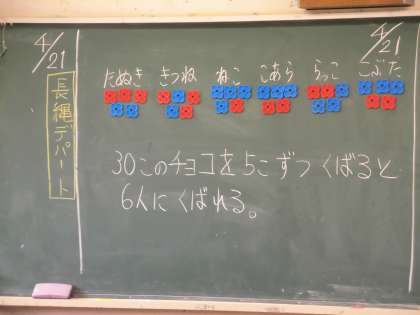 4/21
4/21
長縄デパート
たぬき きつね ねこ こあら らっこ こぶた
30このチョコを5こずつくばると
6人にくばれる。